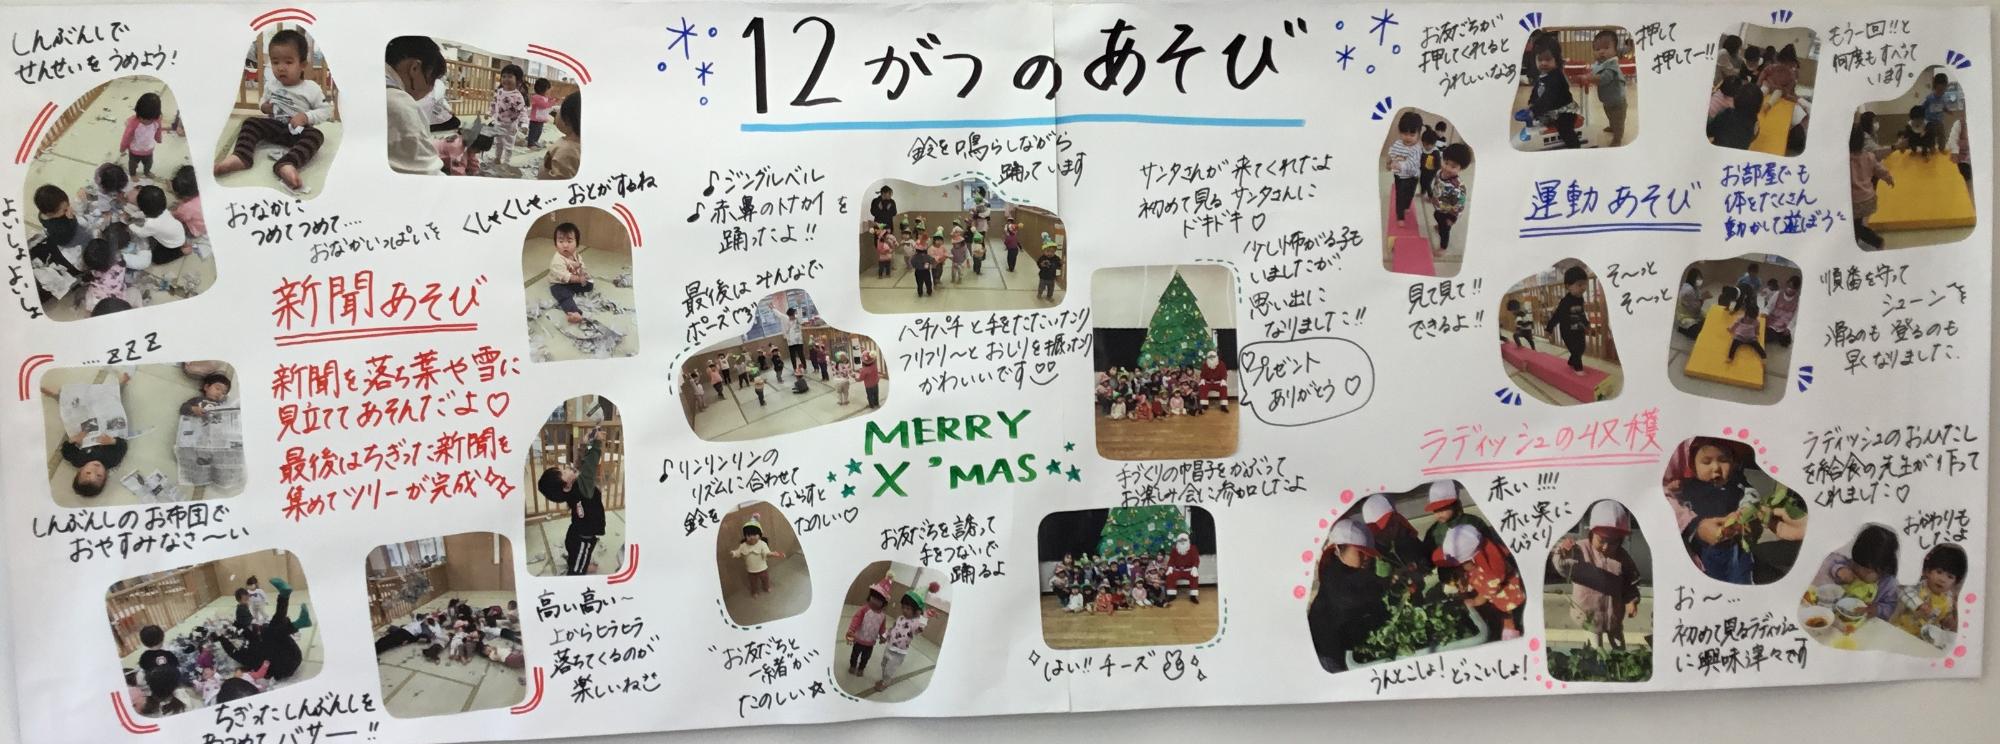 12がつのあそび
しんぶんしで
せんせいをうめよう!
よいしょよいしょ
おなかに
つめてつめて…
おなかいっぱいを
くしゃくしゃ… おとがするね
新聞あそび
新聞を落ち葉や雪に
見立ててあそんだよ♡
最後はちぎった新聞を
集めてツリーが完成
....ZZZ
しんぶんしのお布団で
おやすみなさ〜い
ちぎったしんぶんしを
あつめてバサー!!
高い高い〜
上からヒラヒラ
落ちてくるのが
楽しいね
♪ジングルベル
♪赤鼻のトナカイを
踊ったよ!!
最後はみんなで
ポーズ
鈴を鳴らしながら
踊っています
パチパチと手をたたいたり
フリフリ〜とおしりを振ったり
かわいいです
MERRY
X'MAS
♪リンリンリンの
リズムに合わせて
鈴を
ならすと
たのしい♡
"お友だちと
一緒"が
たのしい☆
お友だちを誘って
手をつないで
踊るよ
サンタさんが来てくれたよ
初めて見るサンタさんに
ドキドキ♡
少し怖がる子も
いましたが!
思い出に
なりました!!
♡プレゼント
ありがとう♡
手づくりの帽子をかぶって
お楽しみ会に参加したよ
はい!!チーズ
お友だちが
押してくれると
うれしいなあ
押して
押してー!!
もう一回!!と
何度もすべって
います。
運動あそび
お部屋でも
体をたくさん
動かして遊ぼう
見て見て!!
できるよ!!
そ〜っと
そ〜っと
順番を守って
シューンを
滑るのも登るのも
早くなりました.
ラディッシュの収穫
赤い!!!!
赤い実に
びっくり
うんとこしょ!どっこいしょ!
お〜…
初めて見るラディッシュ
に興味津々です
ラディッシュのおひたし
を給食の先生が作って
くれました♡
おかわりも
したよ